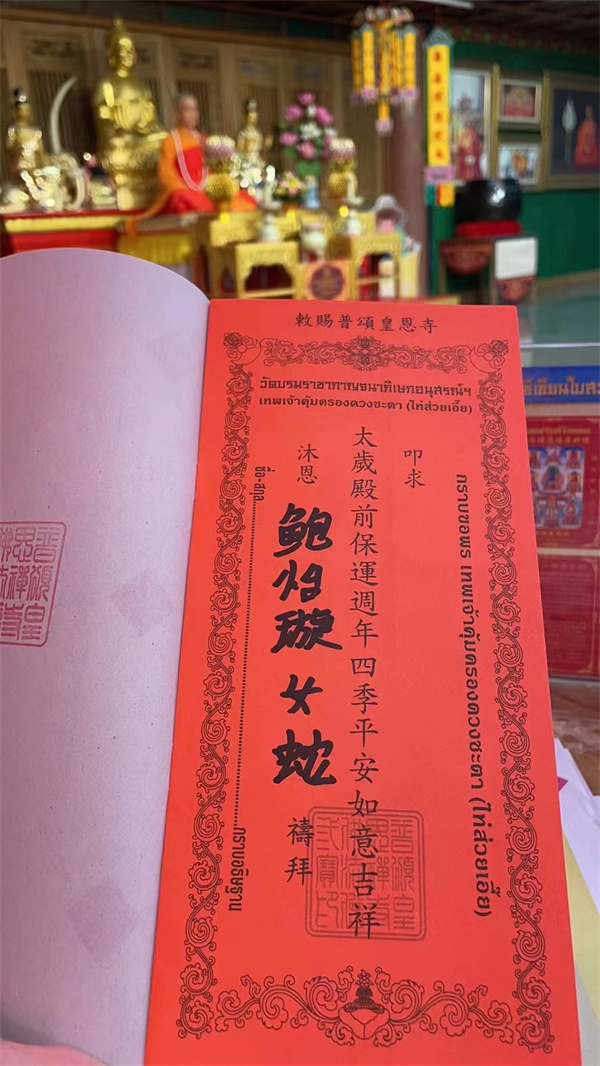 敕賜普頌皇恩寺
วัดบรมราชากาญจนาภิเษกอนุสรณ์ฯ
เทพเจ้าคุ้มครองดวงชะตา (ไท่ส่วยเอี๊ย)
กราบขอพร เทพเจ้าคุ้มครองดวงชะตา (ไท่ส่วยเอี๊ย)
叩求
太歲殿前保運週年四季平安如意吉祥
沐恩
鲍怡璇 女 蛇
禱拜
ชื่อ-สกุล
กราบอธิษฐาน